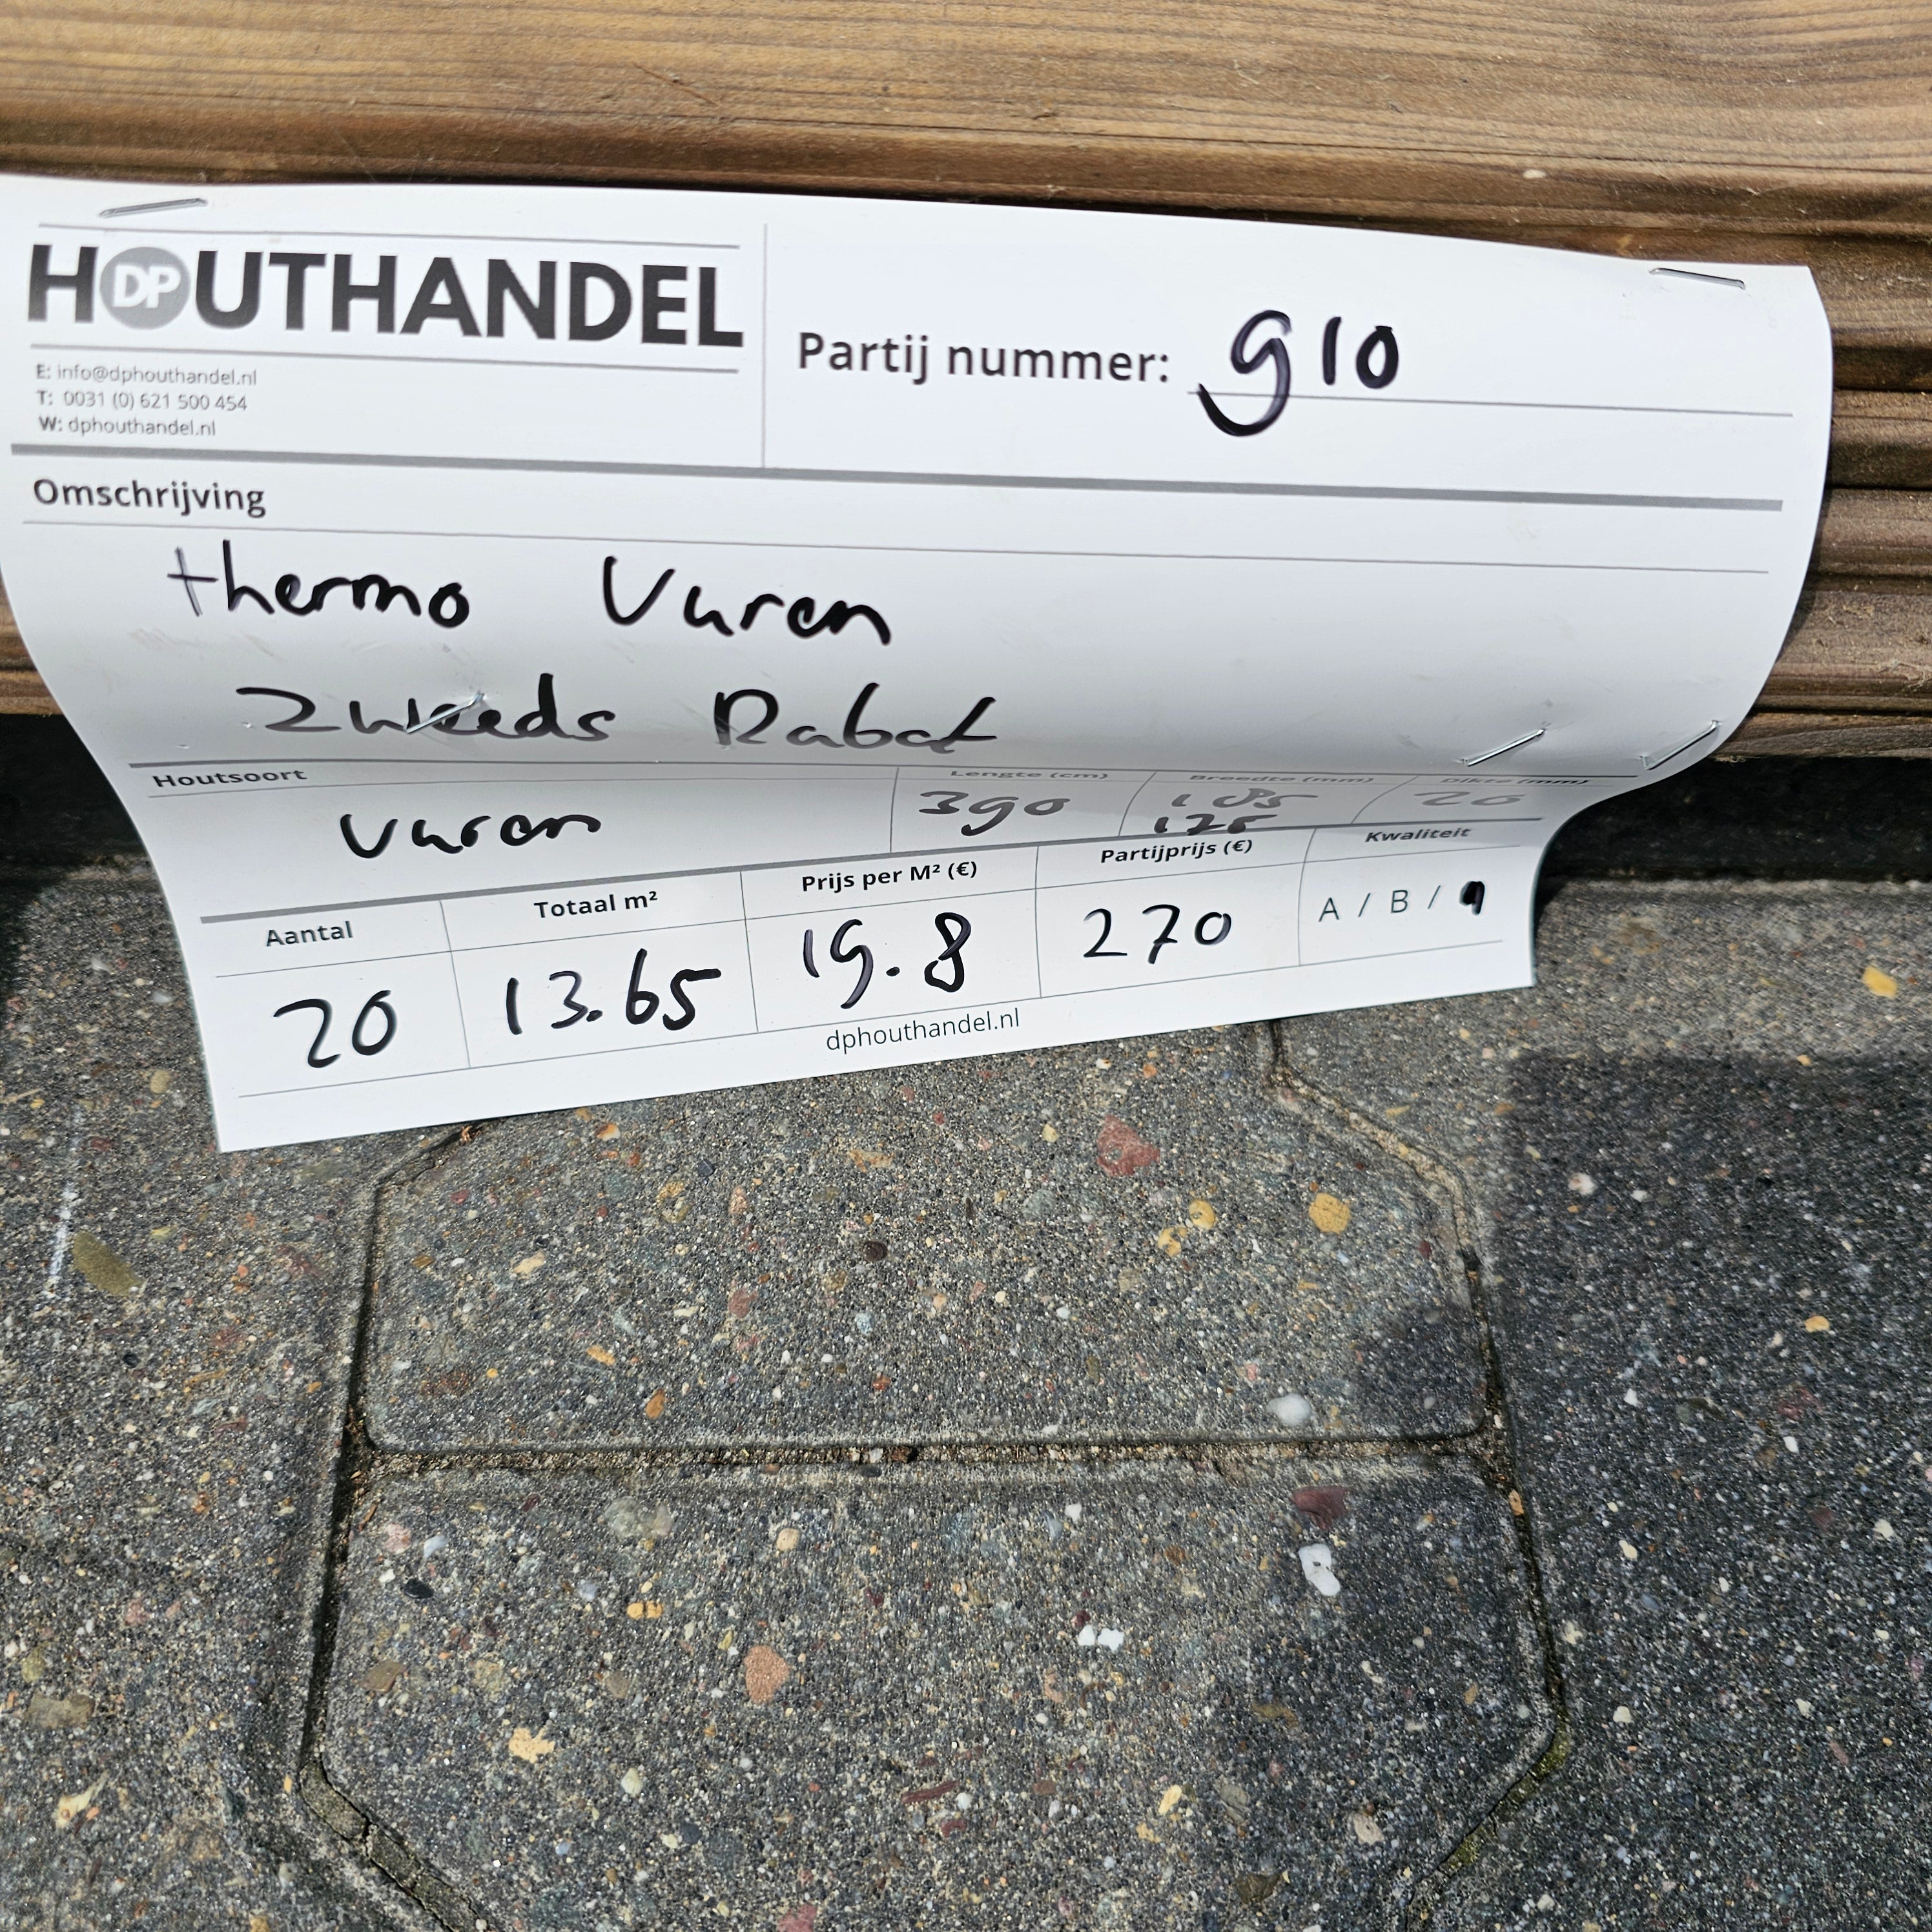 HOUTHANDEL
DP
E: info@dphouthandel.nl
T: 0031 (0) 621 500 454
W: dphouthandel.nl
Partij nummer: 910
Omschrijving
thermo Vuren
Zweeds Rabat
Houtsoort Lengte (cm) Breedte (mm) Dikte (mm)
Vuren 390 185 20
175
Aantal Totaal m² Prijs per M² (€) Partijprijs (€) Kwaliteit
20 13.65 19.8 270 A / B /
dphouthandel.nl